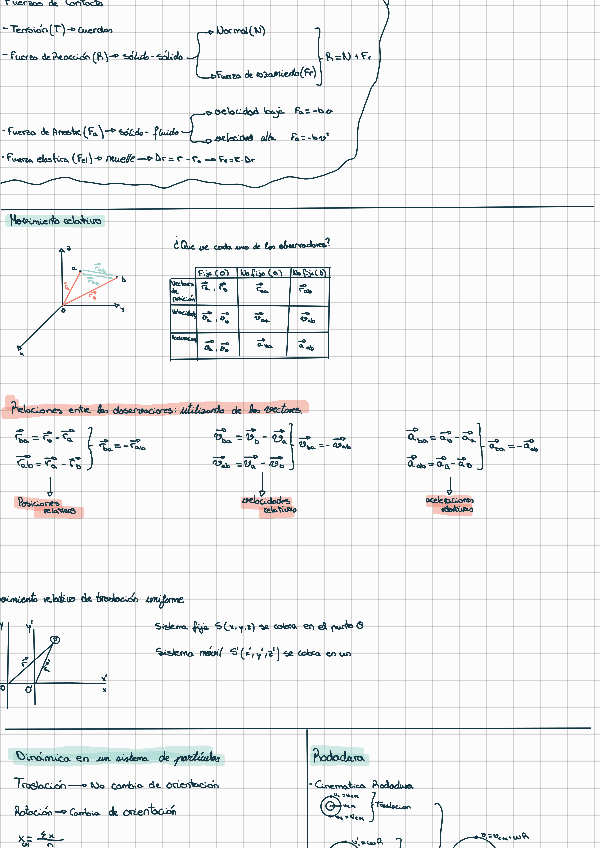 Fuerzas de Contacto
- Tensión (T) → cuerdas
- Fuerza de Reacción (R) → sólido-sólido
→ Normal (N)
→ Fuerza de rozamiento (Fr)
R = N + Fr
- Fuerza de Arrastre (Fa) → sólido-fluido
→ velocidad baja Fa = -bv
→ velocidad alta Fa = -bv²
- Fuerza elástica (Fel) → muelle → Δr = r - r₀ → Fe = k·Δr
Movimiento relativo
z
a
b
y
x
0
¿Que ve cada uno de los observadores?
Fijo (O) No fijo (a) No fijo (b)
Vectores de posición r⃗a, r⃗b r⃗ba r⃗ab
Velocidad v⃗a, v⃗b v⃗ba v⃗ab
a⃗a, a⃗b a⃗ba a⃗ab
Relaciones entre los observaciones: utilizando de los vectores
r⃗ba = r⃗b - r⃗a
r⃗ab = r⃗a - r⃗b
r⃗ba = -r⃗ab
Posiciones relativas
v⃗ba = v⃗b - v⃗a
v⃗ab = v⃗a - v⃗b
v⃗ba = -v⃗ab
velocidades relativas
a⃗ba = a⃗b - a⃗a
a⃗ab = a⃗a - a⃗b
a⃗ba = -a⃗ab
aceleraciones relativas
ovimiento relativo de traslación uniforme
y y'
O O'
x'
x
Sistema fijo S(x,y,z) se coloca en el punto O
Sistema móvil S'(x',y',z') se coloca en un
Dinámica en un sistema de partículas
Traslación → No cambia de orientación
Rotación → Cambia de orientación
Rodadura
- Cinematica Rodadura
v = vcm
vcm
v = vcm
Traslacion
v = vcm + wR